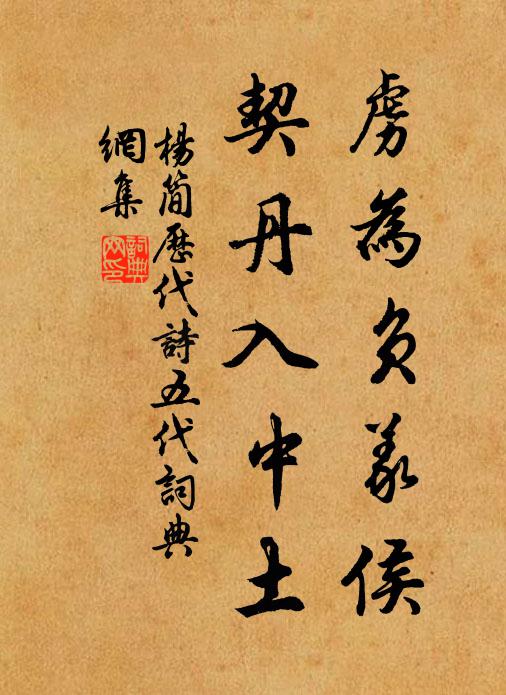 虜為負義侯
契丹入中土
楊簡歷代詩五代詞典
網集
詞典
网印